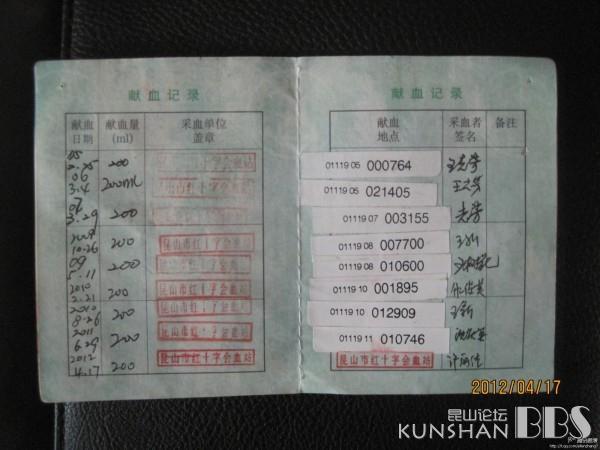 献血记录
献血日期 献血量(ml) 采血单位盖章
05 2.25 200
06 3.4 200ml
07 3.29 200
2008 10.26 200 昆山市红十字会血站
09 5.11 200
2010 2.21 200 昆山市红十字会血站
2010 8.26 200 昆山市红十字会血站
2011 6.29 200 昆山市红十字会血站
2012 4.17 200 昆山市红十字会血站
献血记录
献血地点 采血者签名 备注
01119 05 000764
01119 05 021405
01119 07 003155
01119 08 007700
01119 08 010600
01119 10 001895
01119 10 012909
01119 11 010746
昆山市红十字会血站
2012/04/17
昆山论坛
KUNSHAN BBS